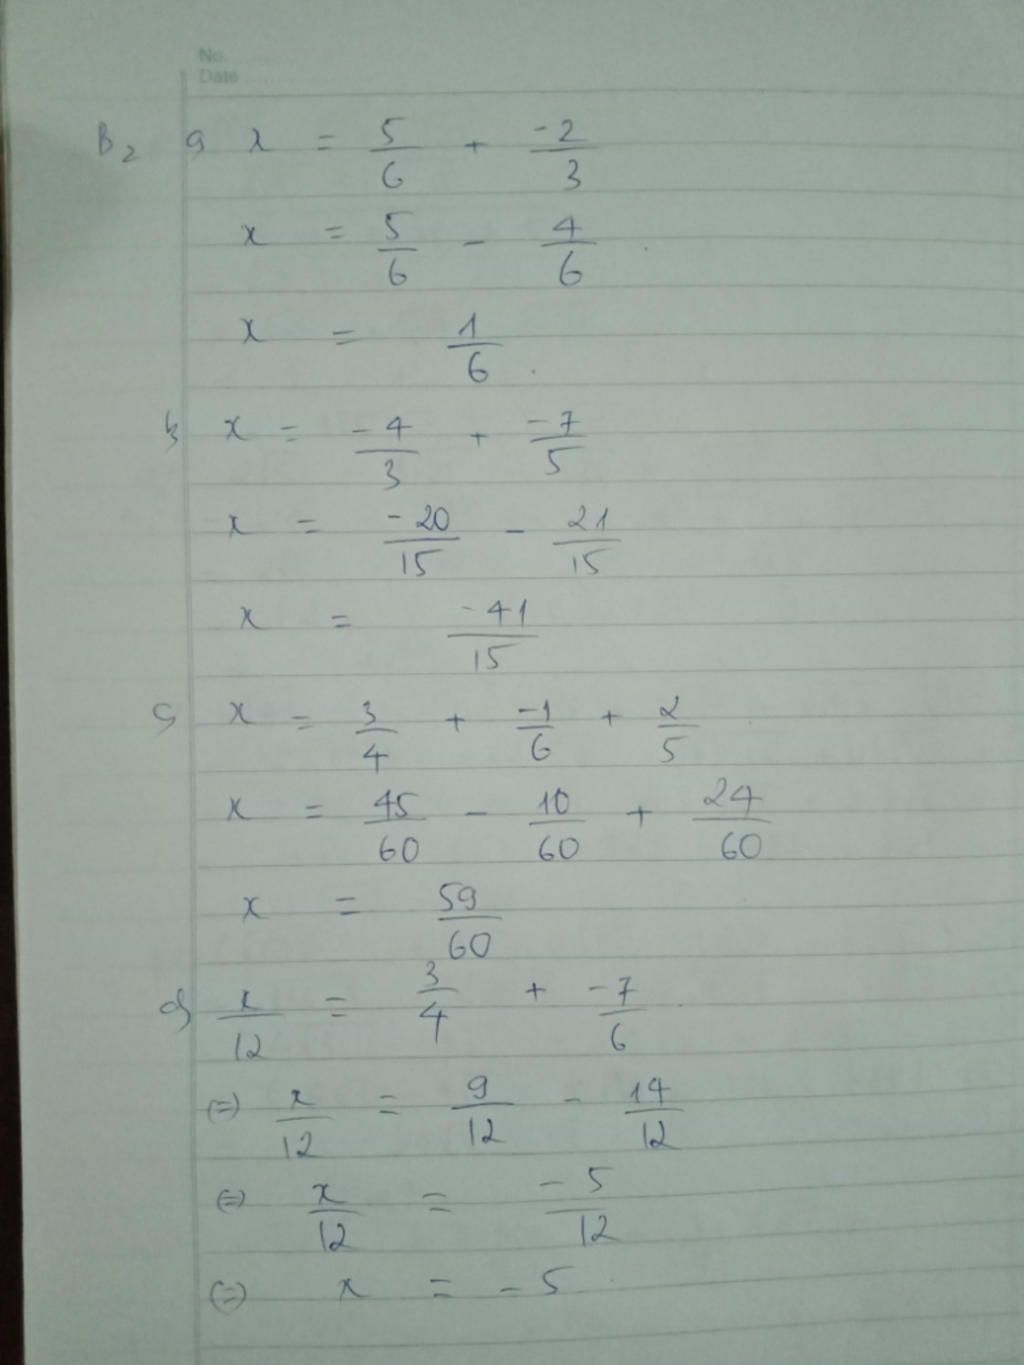 No.
Date
B2 a) x = 5/6 + -2/3
x = 5/6 - 4/6
x = 1/6.
b) x = -4/3 + -7/5
x = -20/15 - 21/15
x = -41/15
c) x = 3/4 + -1/6 + 2/5
x = 45/60 - 10/60 + 24/60
x = 59/60
d) x/12 = 3/4 + -7/6
(=) x/12 = 9/12 - 14/12
(=) x/12 = -5/12
(=) x = -5